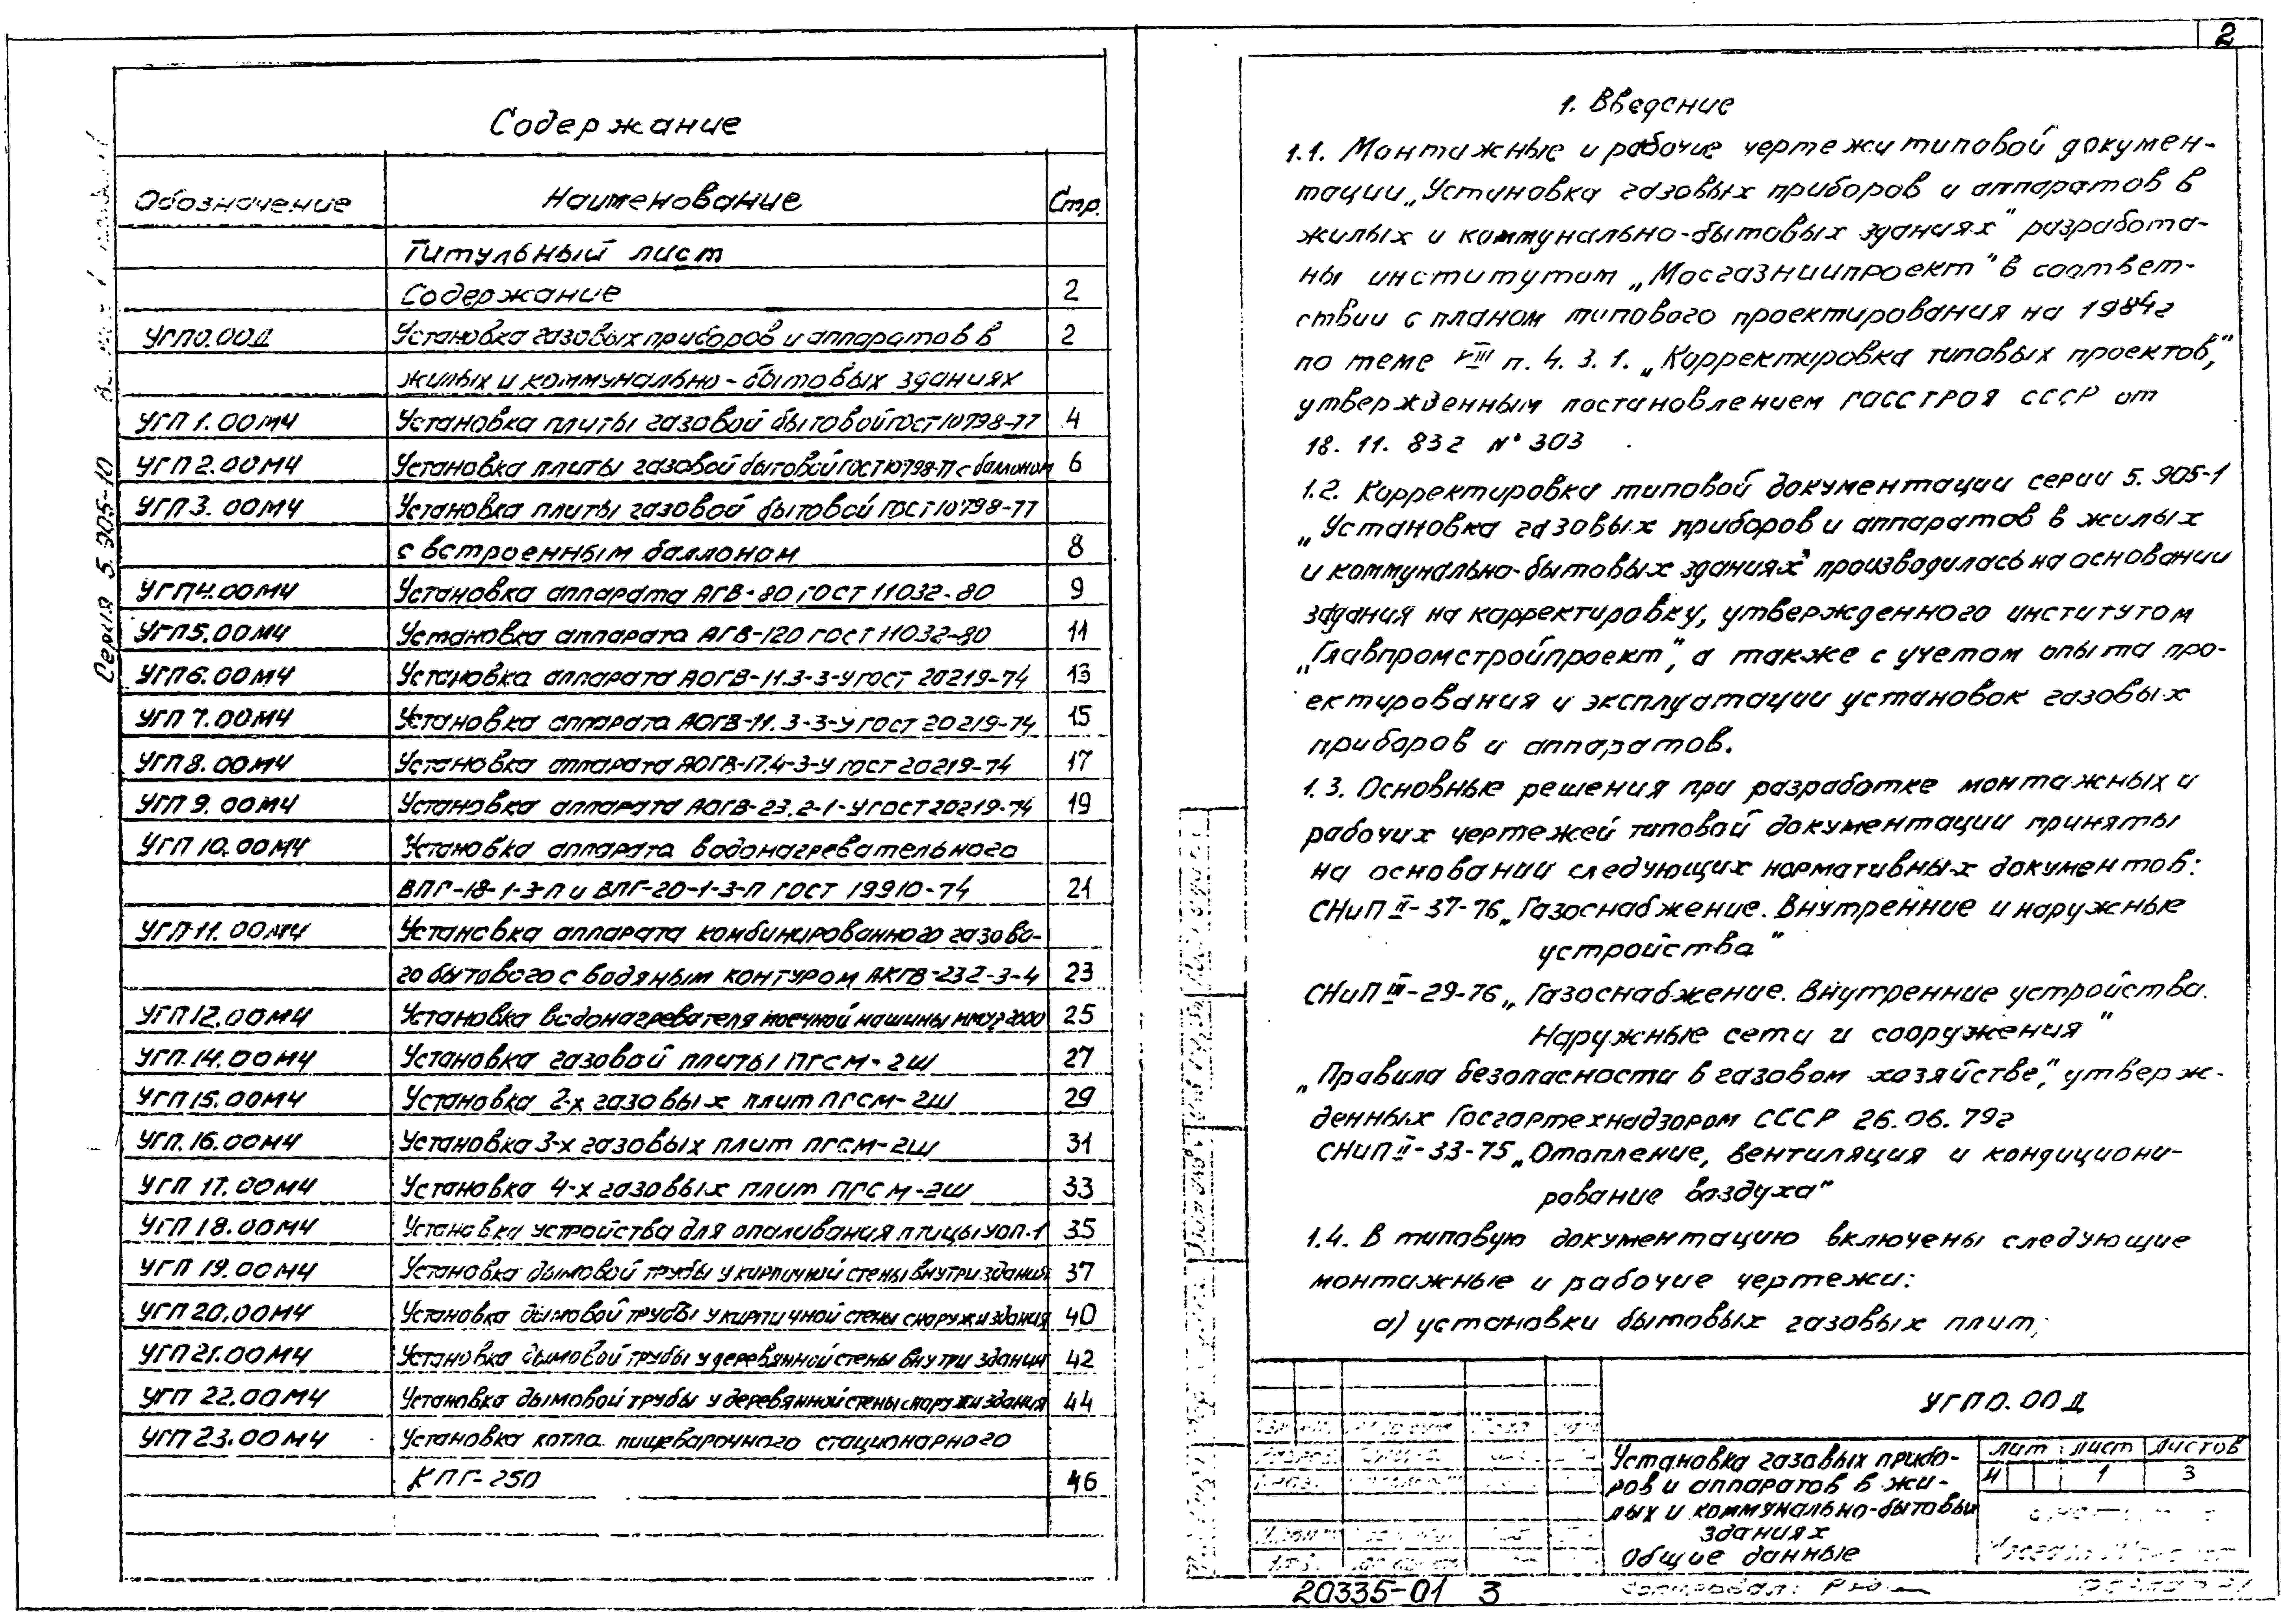 2
Содержание
Обозначение Наименование Стр.
Титульный лист
Содержание 2
УГП0.00Д Установка газовых приборов и аппаратов в 2
жилых и коммунально-бытовых зданиях
УГП 1.00МЧ Установка плиты газовой бытовой ГОСТ 10798-77 4
УГП 2.00МЧ Установка плиты газовой бытовой ГОСТ 10798-77 с баллоном 6
УГП 3.00МЧ Установка плиты газовой бытовой ГОСТ 10798-77
с встроенным баллоном 8
УГП4.00МЧ Установка аппарата АГВ-80 ГОСТ 11032-80 9
УГП5.00МЧ Установка аппарата АГВ-120 ГОСТ 11032-80 11
УГП6.00МЧ Установка аппарата АОГВ-11.3-3-У ГОСТ 20219-74 13
УГП 7.00МЧ Установка аппарата АОГВ-11.3-3-У ГОСТ 20219-74 15
УГП8.00МЧ Установка аппарата АОГВ-17.4-3-У ГОСТ 20219-74 17
УГП 9.00МЧ Установка аппарата АОГВ-23.2-1-У ГОСТ 20219-74 19
УГП 10.00МЧ Установка аппарата водонагревательного
ВПГ-18-1-3-П и ВПГ-20-1-3-П ГОСТ 19910-74 21
УГП 11.00МЧ Установка аппарата комбинированного газово-
го бытового с водяным контуром АКГВ-232-3-4 23
УГП 12.00МЧ Установка водонагревателя моечной машины ММУ-2000 25
УГП.14.00МЧ Установка газовой плиты ПГСМ-2Ш 27
УГП 15.00МЧ Установка 2-х газовых плит ПГСМ-2Ш 29
УГП.16.00МЧ Установка 3-х газовых плит ПГСМ-2Ш 31
УГП 17.00МЧ Установка 4-х газовых плит ПГСМ-2Ш 33
УГП 18.00МЧ Установка устройства для опаливания птицы УОП-1 35
УГП 19.00МЧ Установка дымовой трубы у кирпичной стены внутри здания 37
УГП20.00МЧ Установка дымовой трубы у кирпичной стены снаружи здания 40
УГП21.00МЧ Установка дымовой трубы у деревянной стены внутри здания 42
УГП 22.00МЧ Установка дымовой трубы у деревянной стены снаружи здания 44
УГП 23.00МЧ Установка котла пищеварочного стационарного
КПГ-250 46
Серия 5.905-10
1. Введение
1.1. Монтажные и рабочие чертежи типовой докумен-
тации „Установка газовых приборов и аппаратов в
жилых и коммунально-бытовых зданиях" разработа-
ны институтом „Мосгазниипроект" в соответ-
ствии с планом типового проектирования на 1984г
по теме VIII п. 4.3.1. „Корректировка типовых проектов",
утвержденным постановлением Госстроя СССР от
18.11.83г N° 303
1.2. Корректировка типовой документации серии 5.905-1
„Установка газовых приборов и аппаратов в жилых
и коммунально-бытовых зданиях" производилась на основании
задания на корректировку, утвержденного институтом
„Главпромстройпроект", а также с учетом опыта про-
ектирования и эксплуатации установок газовых
приборов и аппаратов.
1.3. Основные решения при разработке монтажных и
рабочих чертежей типовой документации приняты
на основании следующих нормативных документов:
СНиП II-37-76 „Газоснабжение. Внутренние и наружные
устройства"
СНиП III-29-76 „Газоснабжение. Внутренние устройства.
Наружные сети и сооружения"
„Правила безопасности в газовом хозяйстве", утверж-
денных Госгортехнадзором СССР 26.06.79г
СНиП II-33-75 „Отопление, вентиляция и кондициони-
рование воздуха"
1.4. В типовую документацию включены следующие
монтажные и рабочие чертежи:
а) установки бытовых газовых плит;
УГП0.00Д
Установка газовых прибо-
ров и аппаратов в жи-
лых и коммунально-бытовых
зданиях
Общие данные
Лит Лист Листов
И 1 3
20335-01 3
Копировал: